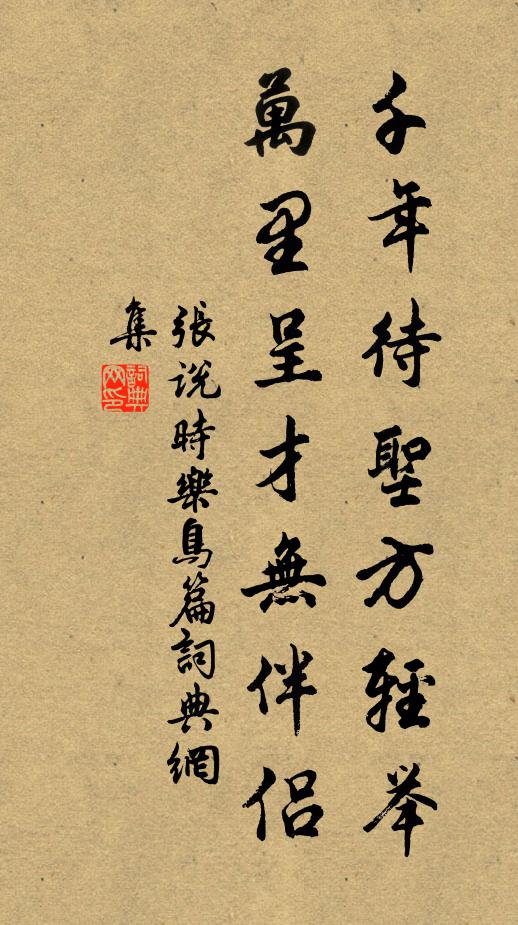 千年待聖方輕举
萬里呈才無伴侣
張說時樂鳥篇詞典網
集
詞典网印